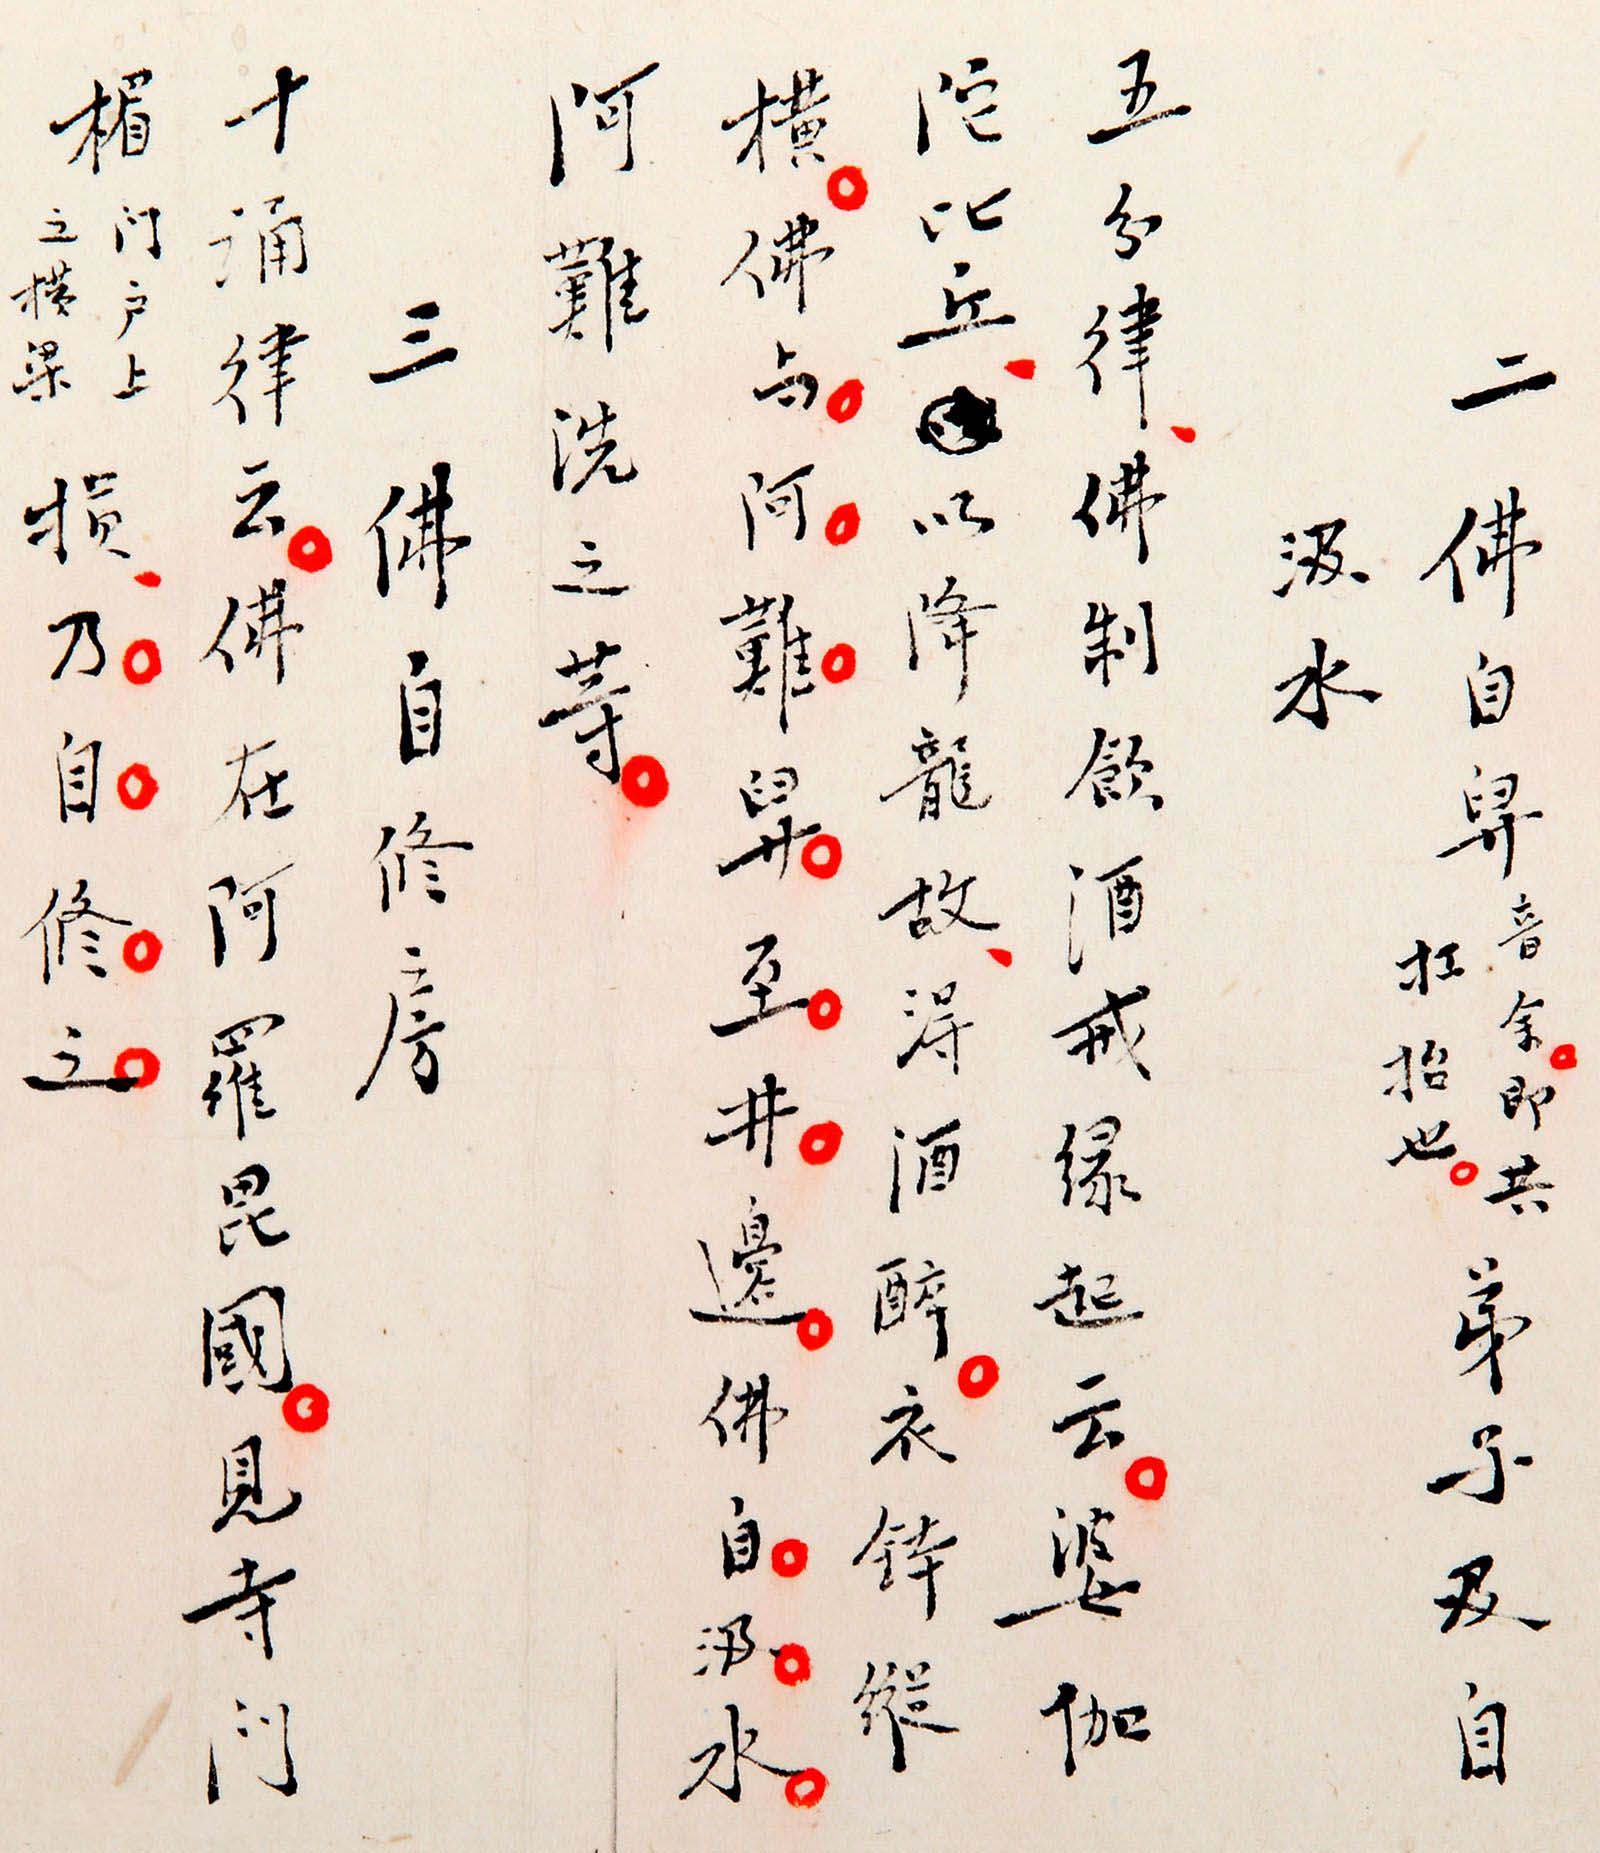 二佛自舁音余。即共扛抬也。弟子及自
汲水
五分律、佛制飲酒戒緣起云。婆伽
陀比丘、以降龍故、得酒醉。衣鉢縱
橫。佛与阿難舁至井邊。佛自汲水。
阿難洗之等。
三佛自修房
十誦律云。佛在阿羅毘國。見寺門
楣门户上之横梁損、乃自修之